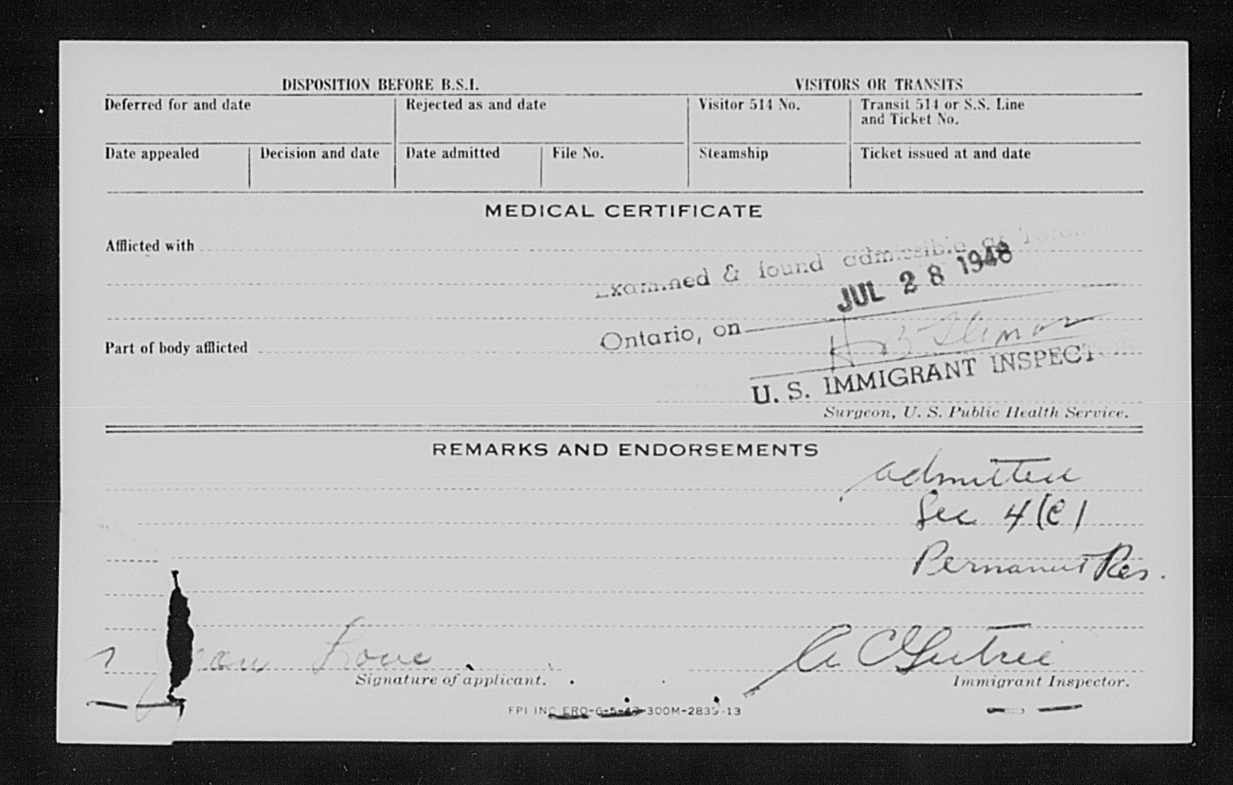 DISPOSITION BEFORE B.S.I.
VISITORS OR TRANSITS
Deferred for and date
Rejected as and date
Visitor 514 No.
Transit 514 or S.S. Line
and Ticket No.
Date appealed
Decision and date
Date admitted
File No.
Steamship
Ticket issued at and date
MEDICAL CERTIFICATE
Afflicted with
Examined & found admissible at
JUL 28 1948
Ontario, on
Part of body afflicted
U. S. IMMIGRANT INSPECT
Surgeon, U. S. Public Health Service.
REMARKS AND ENDORSEMENTS
admitted
Sec 4(c)
Permanent Res.
Signature of applicant.
Immigrant Inspector.
FPI INC 300M-2835-13